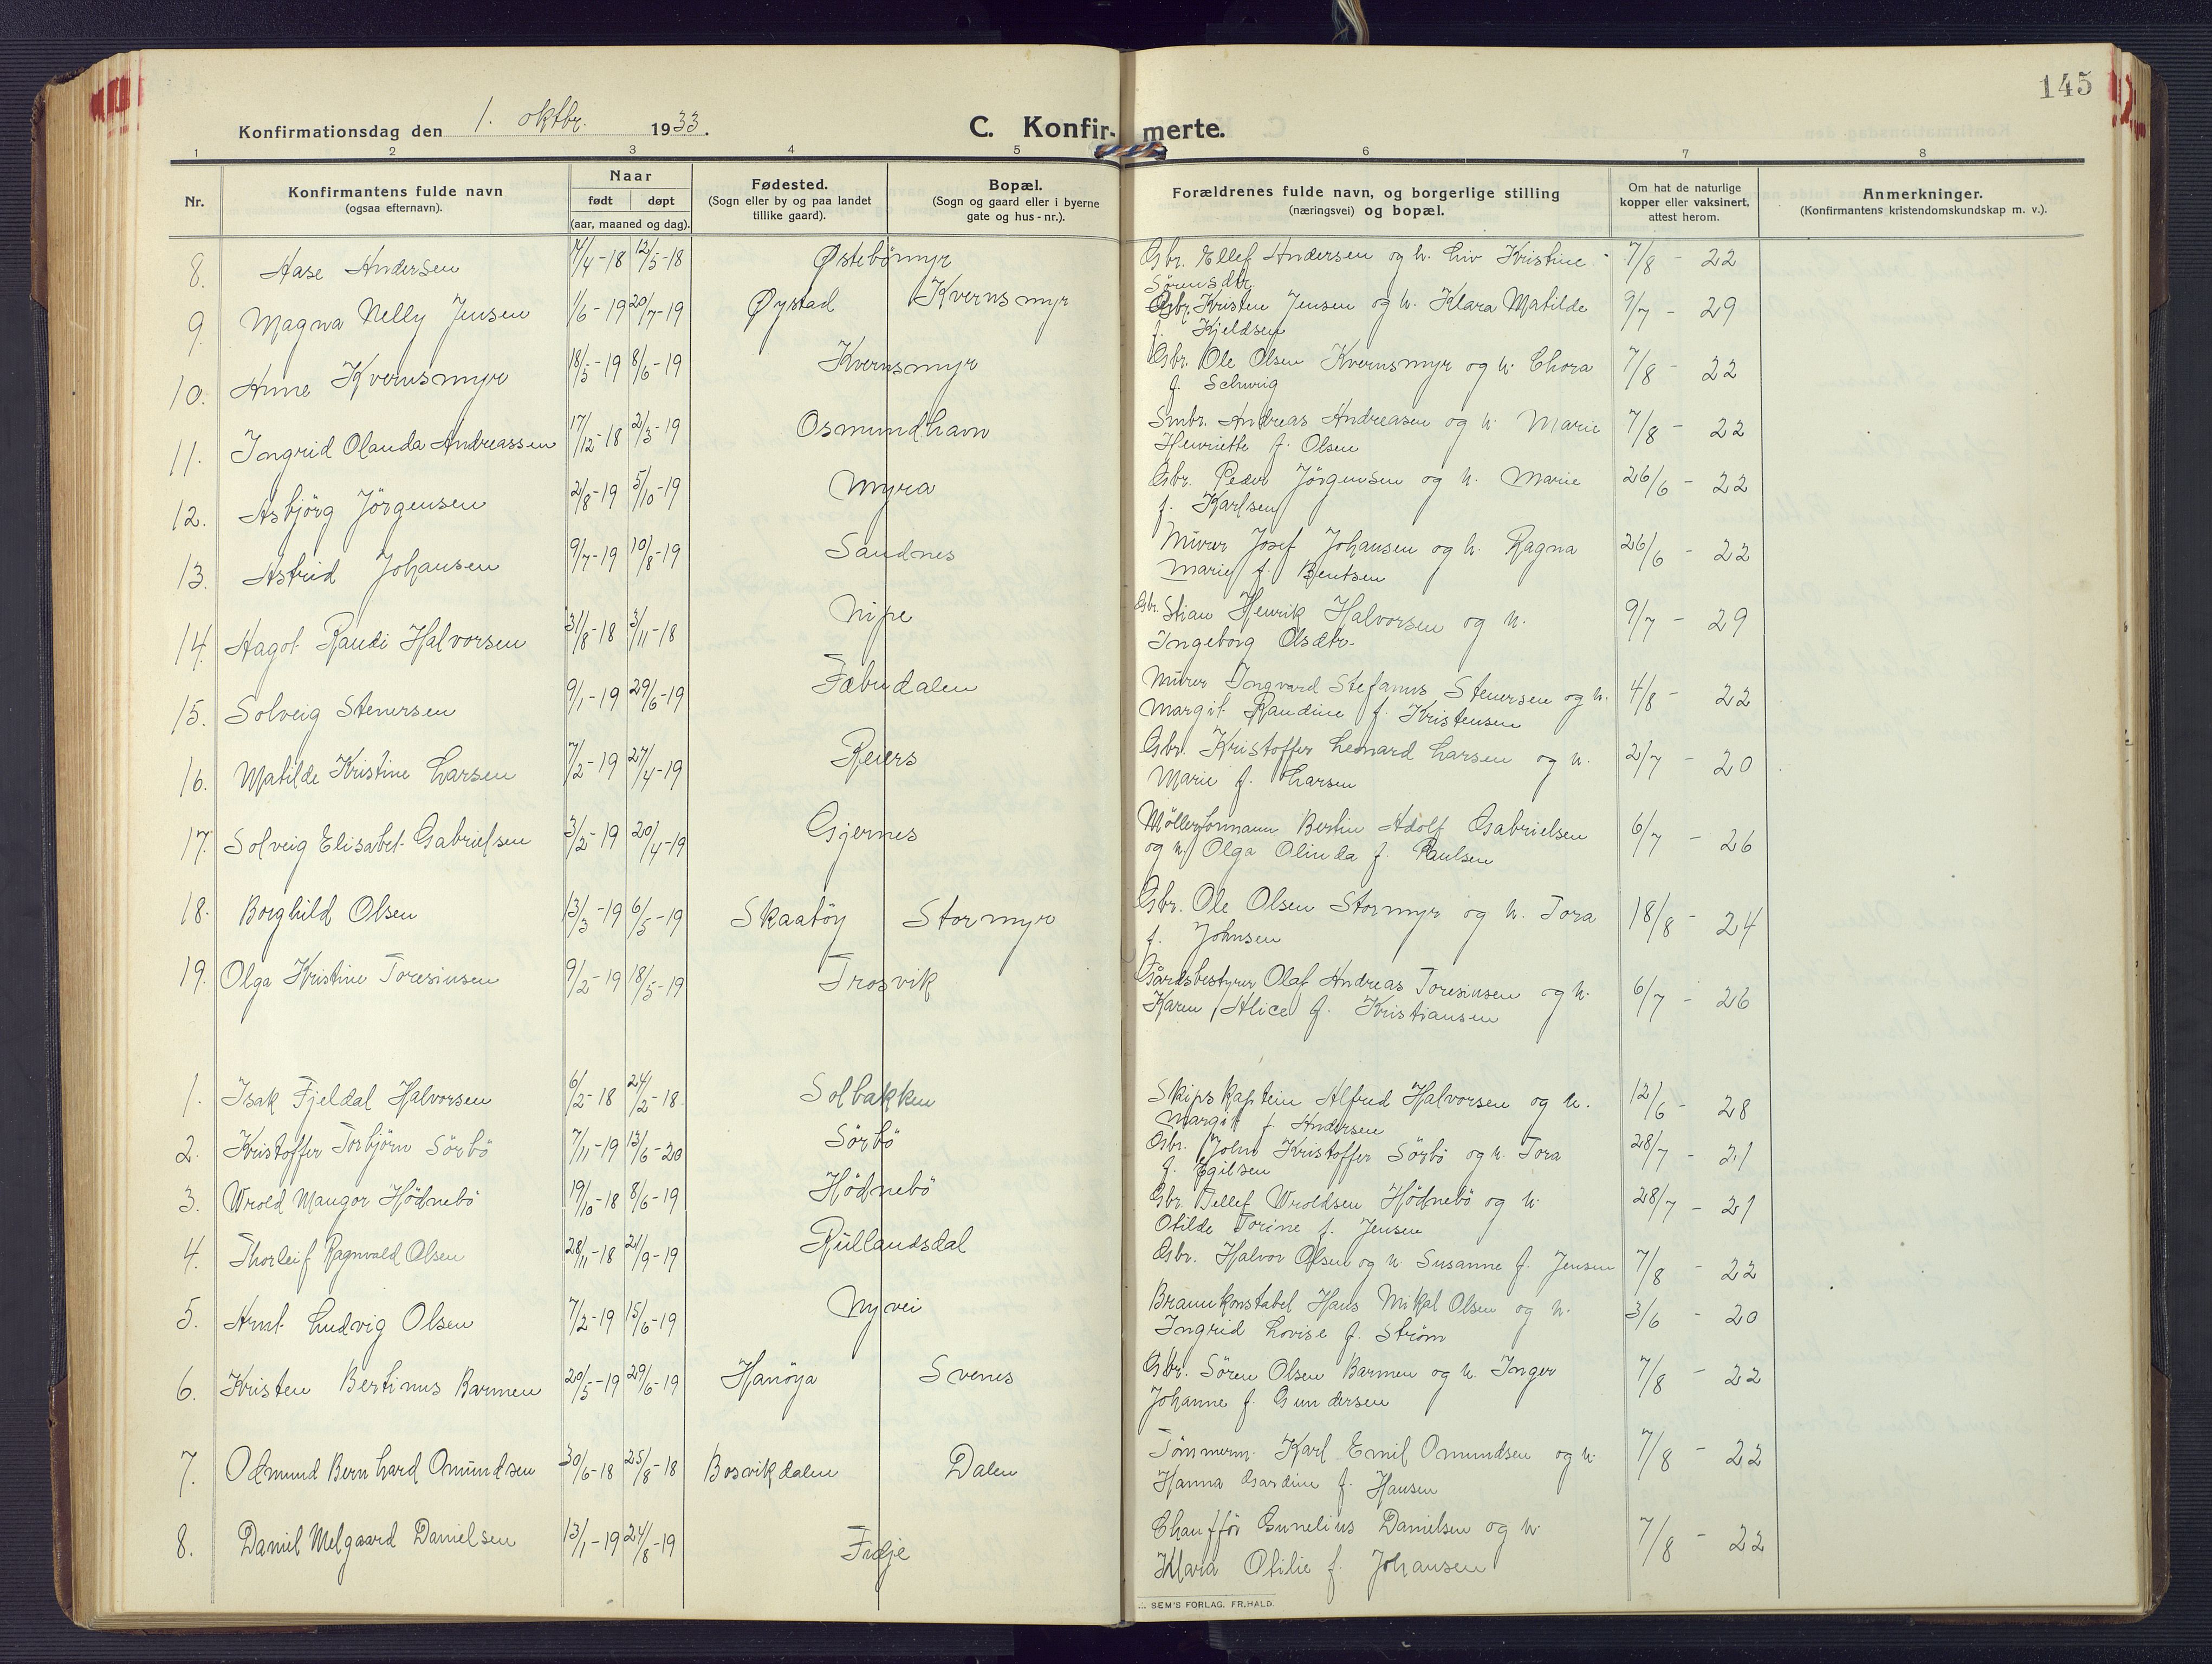 145
Konfirmationsdag den 1. oktbr. 1933.
C. Konfir- merte.
1 2 3 4 5 6 7 8
Nr.
Konfirmantens fulde navn
(ogsaa efternavn).
Naar
født døpt
(aar, maaned og dag).
Fødested.
(Sogn eller by og paa landet
tillike gaard).
Bopæl.
(Sogn og gaard eller i byerne
gate og hus-nr.).
Forældrenes fulde navn, og borgerlige stilling
(næringsvei) og bopæl.
Om hat de naturlige
kopper eller vaksinert,
attest herom.
Anmerkninger.
(Konfirmantens kristendomskundskap m. v.).
8. Aase Andersen 17/4-18 12/5-18 Østebömyr Gbr. Ellef Andersen og h. Liv Kristine 7/8 - 22
Sörensdtr.
9. Magna Nelly Jensen 1/6-19 20/7-19 Øystad Kvernsmyr Gbr. Kristen Jensen og h. Klara Matilde 9/7 - 29
f. Kjeldsen
10. Anne Kvernsmyr 18/5-19 8/6-19 Kvernsmyr Gbr. Ole Olsen Kvernsmyr og h. Thora 7/8 - 22
f. Schwig
11. Ingrid Olanda Andreassen 17/12-18 2/3-19 Osmundhavn Smbr. Andreas Andreasen og h. Marie 7/8 - 22
Henriette f. Olsen
12. Asbjörg Jörgensen 2/8-19 5/10-19 Myra Gbr. Peder Jörgensen og h. Marie 26/6 - 22
f. Karlsen
13. Astrid Johansen 9/7-19 10/8-19 Sandnes Murer Josef Johansen og h. Ragna 26/6 - 22
Marie f. Bentsen
14. Aagot Randi Halvorsen 31/8-18 3/11-18 Nipe Gbr. Stian Henrik Halvorsen og h. 9/7 - 29
Ingeborg Olsdtr.
15. Solveig Stenersen 9/1-19 29/6-19 Murer Ingvard Stefanus Stenersen og h. 4/8 - 22
Margit Randine f. Kristensen
16. Matilde Kristine Larsen 7/2-19 27/4-19 Reiers Gbr. Kristoffer Lenard Larsen og h. 2/7 - 20
Marie f. Larsen
17. Solveig Elisabet Gabrielsen 3/2-19 20/4-19 Gjernes Möllerformann Bertin Adolf Gabrielsen 6/7 - 26
og h. Olga Olinda f. Paulsen
18. Borghild Olsen 13/3-19 6/5-19 Skaatöy Stormyr Gbr. Ole Olsen Stormyr og h. Tora 18/8 - 24
f. Johnsen
19. Olga Kristine Toresinsen 9/2-19 18/5-19 Trosvik Gårdsbestyrer Olaf Andreas Toresinsen og h. 6/7 - 26
Karen Alice f. Kristiansen
1. Isak Fjeldal Halvorsen 6/2-18 24/2-18 Solbakken Skipskaptein Alfred Halvorsen og h. 12/6 - 28
Margit f. Andersen
2. Kristoffer Torbjörn Sörbö 7/11-19 13/6-20 Sörbö Gbr. John Kristoffer Sörbö og h. Tora 28/7 - 21
f. Egilsen
3. Wrold Mangor Hödnebö 19/10-18 8/6-19 Hödnebö Gbr. Tellef Wroldsen Hödnebö og h. 28/7 - 21
Otilde Torine f. Jensen
4. Thorleif Ragnvald Olsen 28/11-18 21/9-19 Rullandsdal Gbr. Halvor Olsen og h. Susanne f. Jensen 7/8 - 22
5. Arnt Ludvig Olsen 7/2-19 15/6-19 Nyvei Brannkonstabel Hans Mikal Olsen og h. 3/6 - 20
Ingrid Lovise f. Strøm
6. Kristen Bertinus Barmen 20/5-19 29/6-19 Hanöya Svenes Gbr. Sören Olsen Barmen og h. Inger 7/8 - 22
Johanne f. Gundersen
7. Odmund Bernhard Omundsen 30/6-18 25/8-18 Bosvikdalen Dalen Tömmerm. Karl Emil Omundsen og h. 7/8 - 22
Hanna Gardine f. Hansen
8. Daniel Melgaard Danielsen 13/1-19 24/8-19 Fidje Chaufför Gunelius Danielsen og h. 7/8 - 22
Klara Otilie f. Johansen
SEM'S FORLAG. FR.HALD.